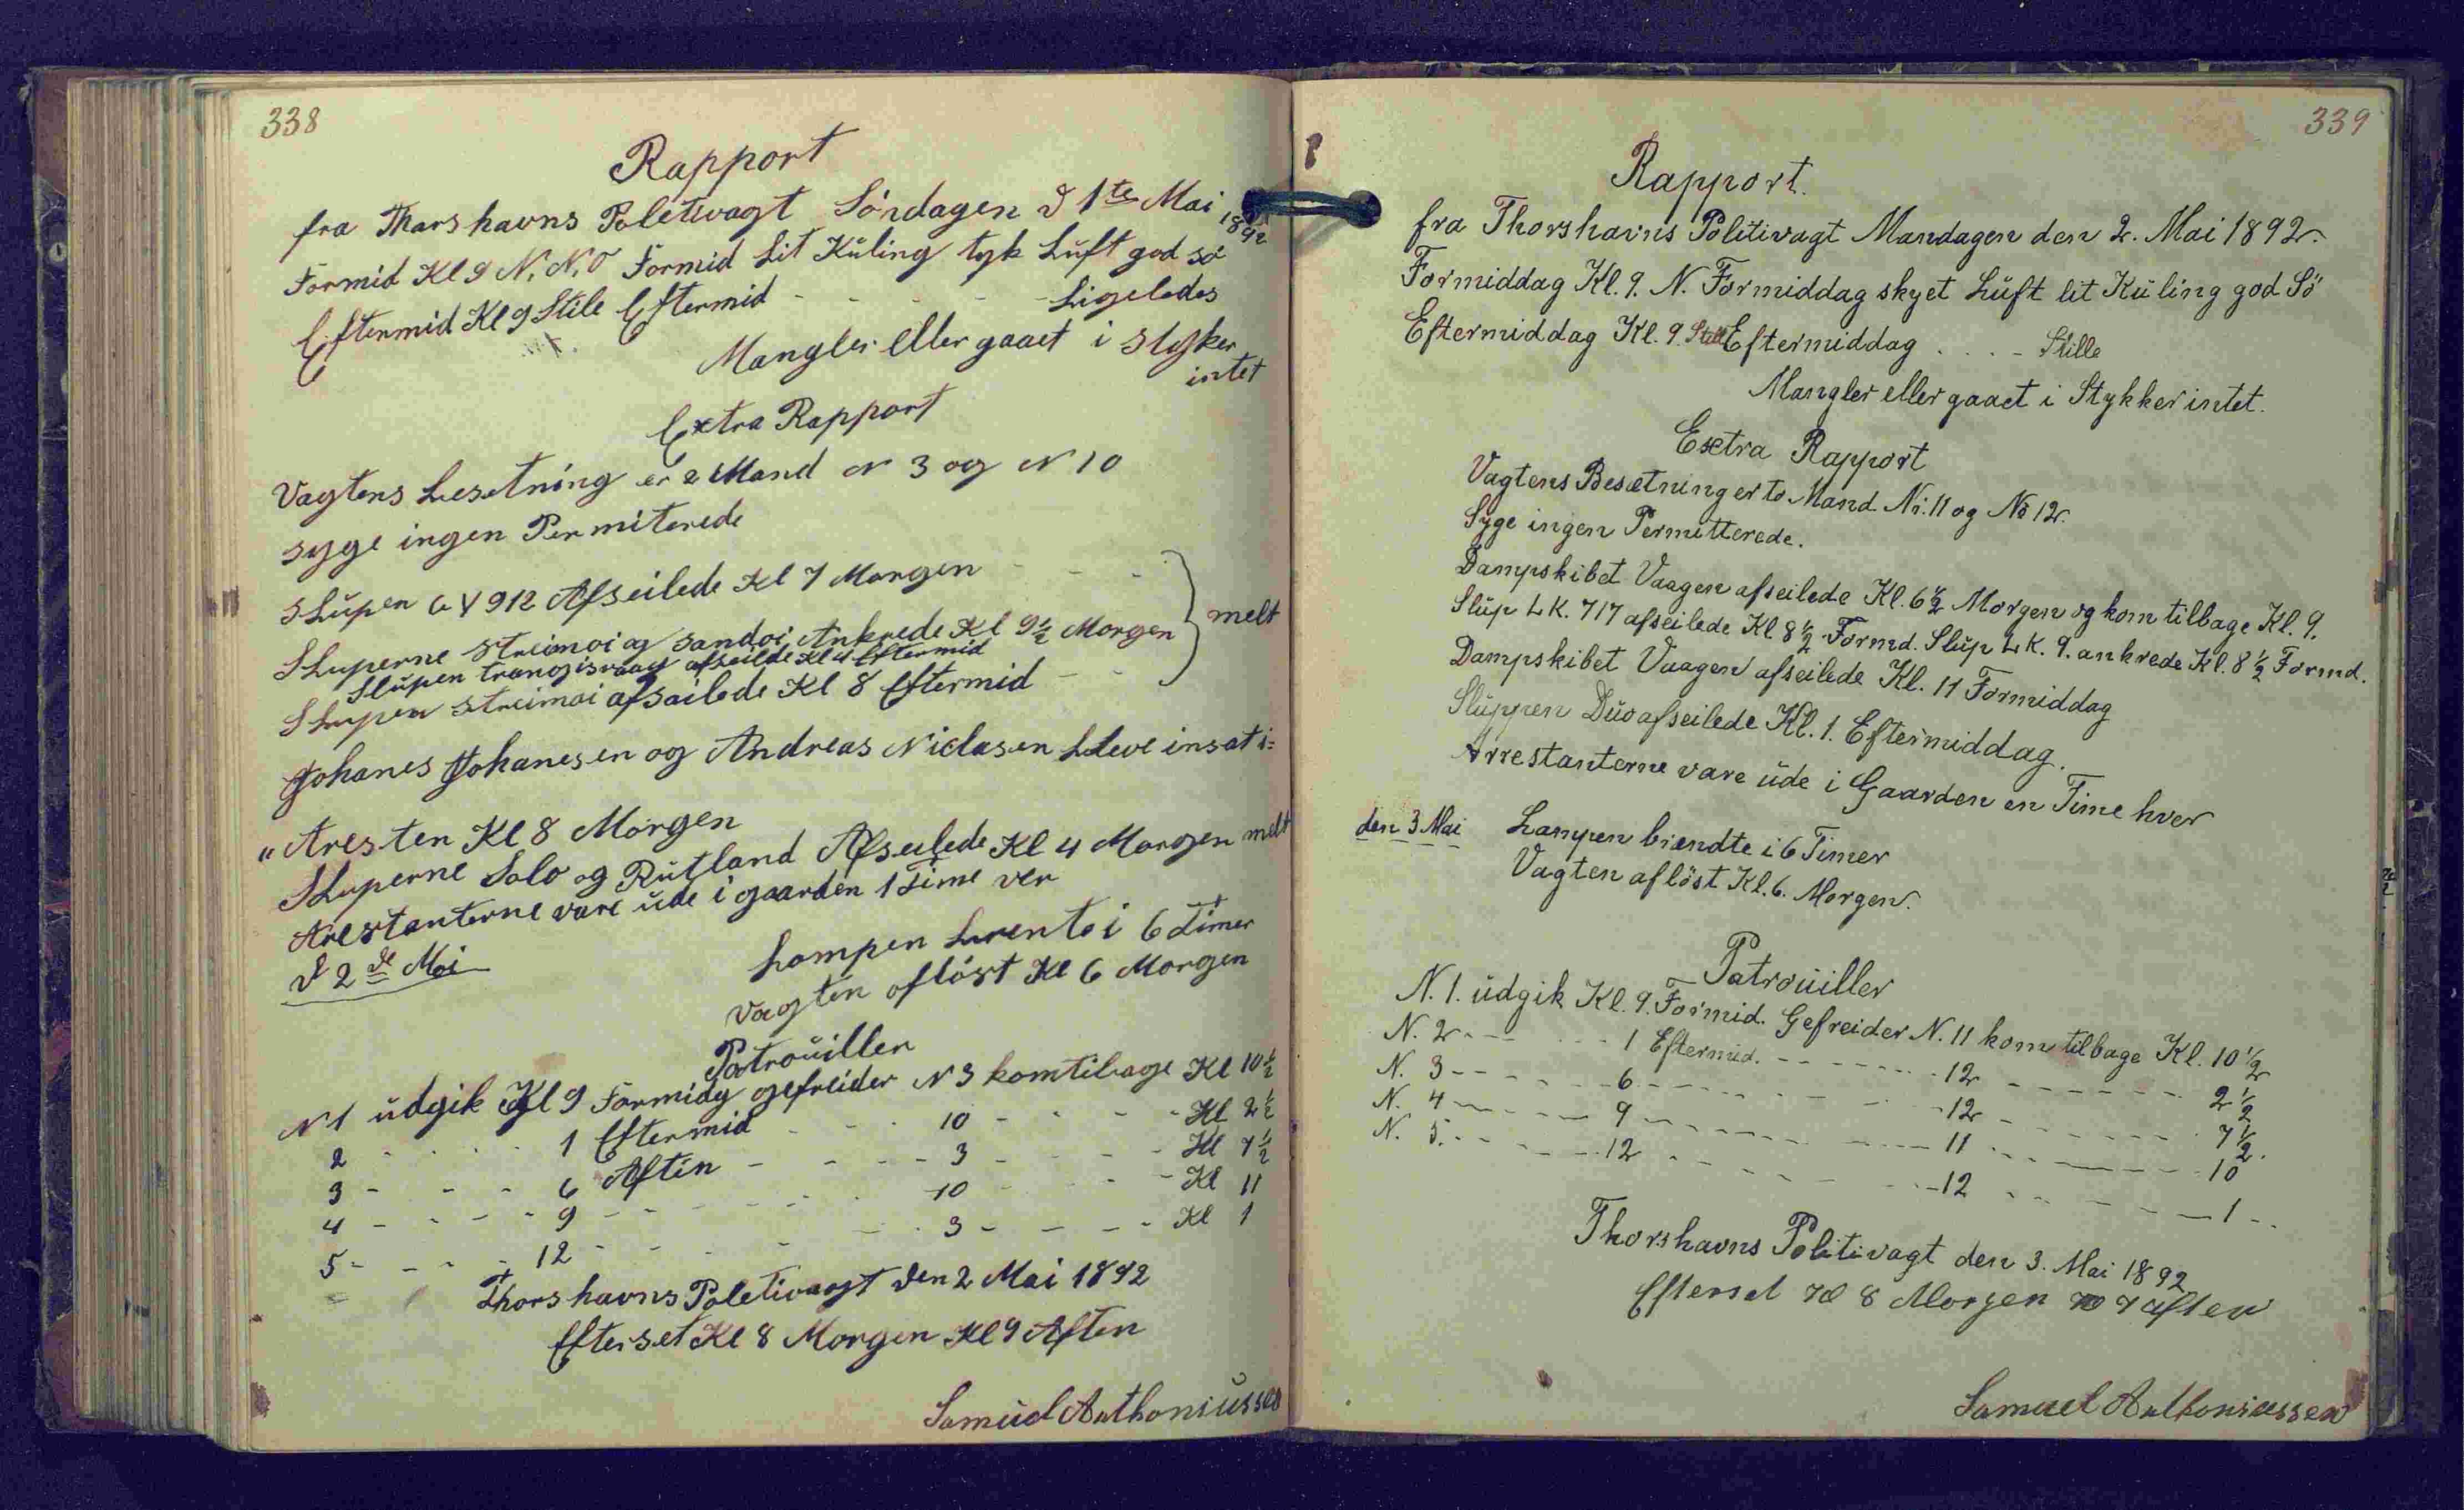 338
Rapport
fra Thorshavns Poletivagt Söndagen d 1te Mai 1892
Formid Kl 9 N, N, O Formid Lit Kuling tyk Luft god sö
Eftermid Kl 9 Stile Eftermid - - - - - Ligeledes
Mangler eller gaaet i Styker
intet
Extra Rapport
Vagtens besetning er 2 Mand N 3 og N 10
syge ingen Permiterede
Slupen 912 Afseilede Kl 7 Morgen - - -
Sluperne Streimoi og Sandoi Ankrede Kl 9 1/2 Morgen } melt
Slupen trangisvaag afseilde Kl 4 Eftermid
Slupen Streimoi afseilede Kl 8 Eftermid - -
Johanes Johanesen og Andreas Niclasen bleve insat i=
"Aresten Kl 8 Morgen
Sluperne Solo og Rutland Afseilede Kl 4 Morgen melt
Arestanterne vare ude i gaarden 1 Time ver
d 2de Mai
Lampen brente i 6 Timer
Vagten aflöst Kl 6 Morgen
Patrouiller
N 1 udgik Kl 9 Formidg gefreider N 3 kom tilbage Kl 10 1/2
2 - - - - 1 Eftermid - - - 10 - - - - Kl 2 1/2
3 - - - 6 Aften - - - - 3 - - - - Kl 7 1/2
4 - - - - 9 - - - - - 10 - - - Kl 11
5 - - - - 12 - - - - - 3 - - - - Kl 1
Thorshavns Poletivagt den 2 Mai 1892
Efterset Kl 8 Morgen Kl 9 Aften
Samuel Anthoniussen
339
Rapport.
fra Thorshavns Politivagt Mandagen den 2. Mai 1892.
Formiddag Kl. 9. N. Formiddag skyet Luft lit Kuling god Sö
Eftermiddag Kl. 9. Still Eftermiddag . . . - Stille
Mangler eller gaaet i Stykker intet.
Extra Rapport
Vagtens Besætning er to Mand No: 11 og No 12.
Syge ingen Permitterede.
Dampskibet Vaagen afseilede Kl. 6 1/2 Morgen og kom tilbage Kl. 9.
Slup LK. 717 afseilede Kl 8 1/2 Formd. Slup LK. 9. ankrede Kl. 8 1/2 Formd.
Dampskibet Vaagen afseilede Kl. 11 Formiddag
Sluppen Duo afseilede Kl. 1. Eftermiddag.
Arrestanterne vare ude i Gaarden en Time hver
den 3 Mai Lampen brændte i 6 Timer
Vagten aflöst Kl. 6. Morgen.
Patrouiller
N. 1. udgik Kl. 9. Formid. Gefreider N. 11 kom tilbage Kl. 10 1/2
N. 2 - - - - - 1 Eftermid. - - - - - 12 - - - - - 2 1/2
N. 3 - - - - - 6 - - - - - 12 - - - - - 7 1/2.
N. 4 - - - - - 9 - - - - - 11 - - - - - 10
N. 5. - - - - - 12 - - - - - 12 - - - - - 1 - -
Thorshavns Politivagt den 3. Mai 1892
Efterset Kl 8 Morgen Kl 7 Aften
Samuel Anthoniussen